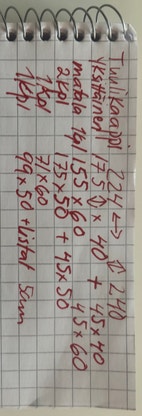 Tuulikaappi 224 ↔ ↕ 240
Yksittäinen 175 ↕ x 40 + 45x40
matala 1kpl 155 x 60 45 x 60
2kpl 175 x 50 + 45x50
1kpl 71 x 60
1kpl 99 x 50 + listat 5cm